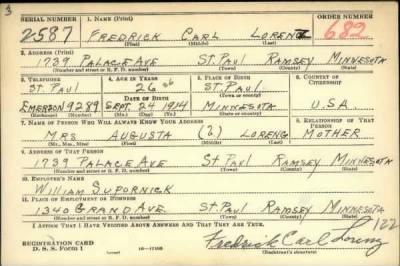 3
SERIAL NUMBER 1. NAME (Print) ORDER NUMBER
2587 FREDRICK CARL LORENZ 682
(First) (Middle) (Last)
2. ADDRESS (Print)
1739 PALACE AVE ST. PAUL RAMSEY MINNESOTA
(Number and street or R. F. D. number) (Town) (County) (State)
3. TELEPHONE 4. AGE IN YEARS 5. PLACE OF BIRTH 6. COUNTRY OF CITIZENSHIP
ST. PAUL 26 ST. PAUL
DATE OF BIRTH (Town or county)
EMERSON 9289 SEPT. 24 1914 MINNESOTA U.S.A.
(Exchange) (Number) (Mo.) (Day) (Yr.) (State or country)
7. NAME OF PERSON WHO WILL ALWAYS KNOW YOUR ADDRESS 8. RELATIONSHIP OF THAT PERSON
MRS AUGUSTA (2) LORENZ MOTHER
(Mr., Mrs., Miss) (First) (Middle) (Last)
9. ADDRESS OF THAT PERSON
1739 PALACE AVE ST. PAUL RAMSEY MINNESOTA
(Number and street or R. F. D. number) (Town) (County) (State)
10. EMPLOYER'S NAME
WILLIAM SUPORNICK
11. PLACE OF EMPLOYMENT OR BUSINESS
1340 GRAND AVE ST. PAUL RAMSEY MINNESOTA
(Number and street or R. F. D. number) (Town) (County) (State)
I AFFIRM THAT I HAVE VERIFIED ABOVE ANSWERS AND THAT THEY ARE TRUE. 122
REGISTRATION CARD
D. S. S. FORM 1 Fredrick Carl Lorenz
(Registrant's signature)